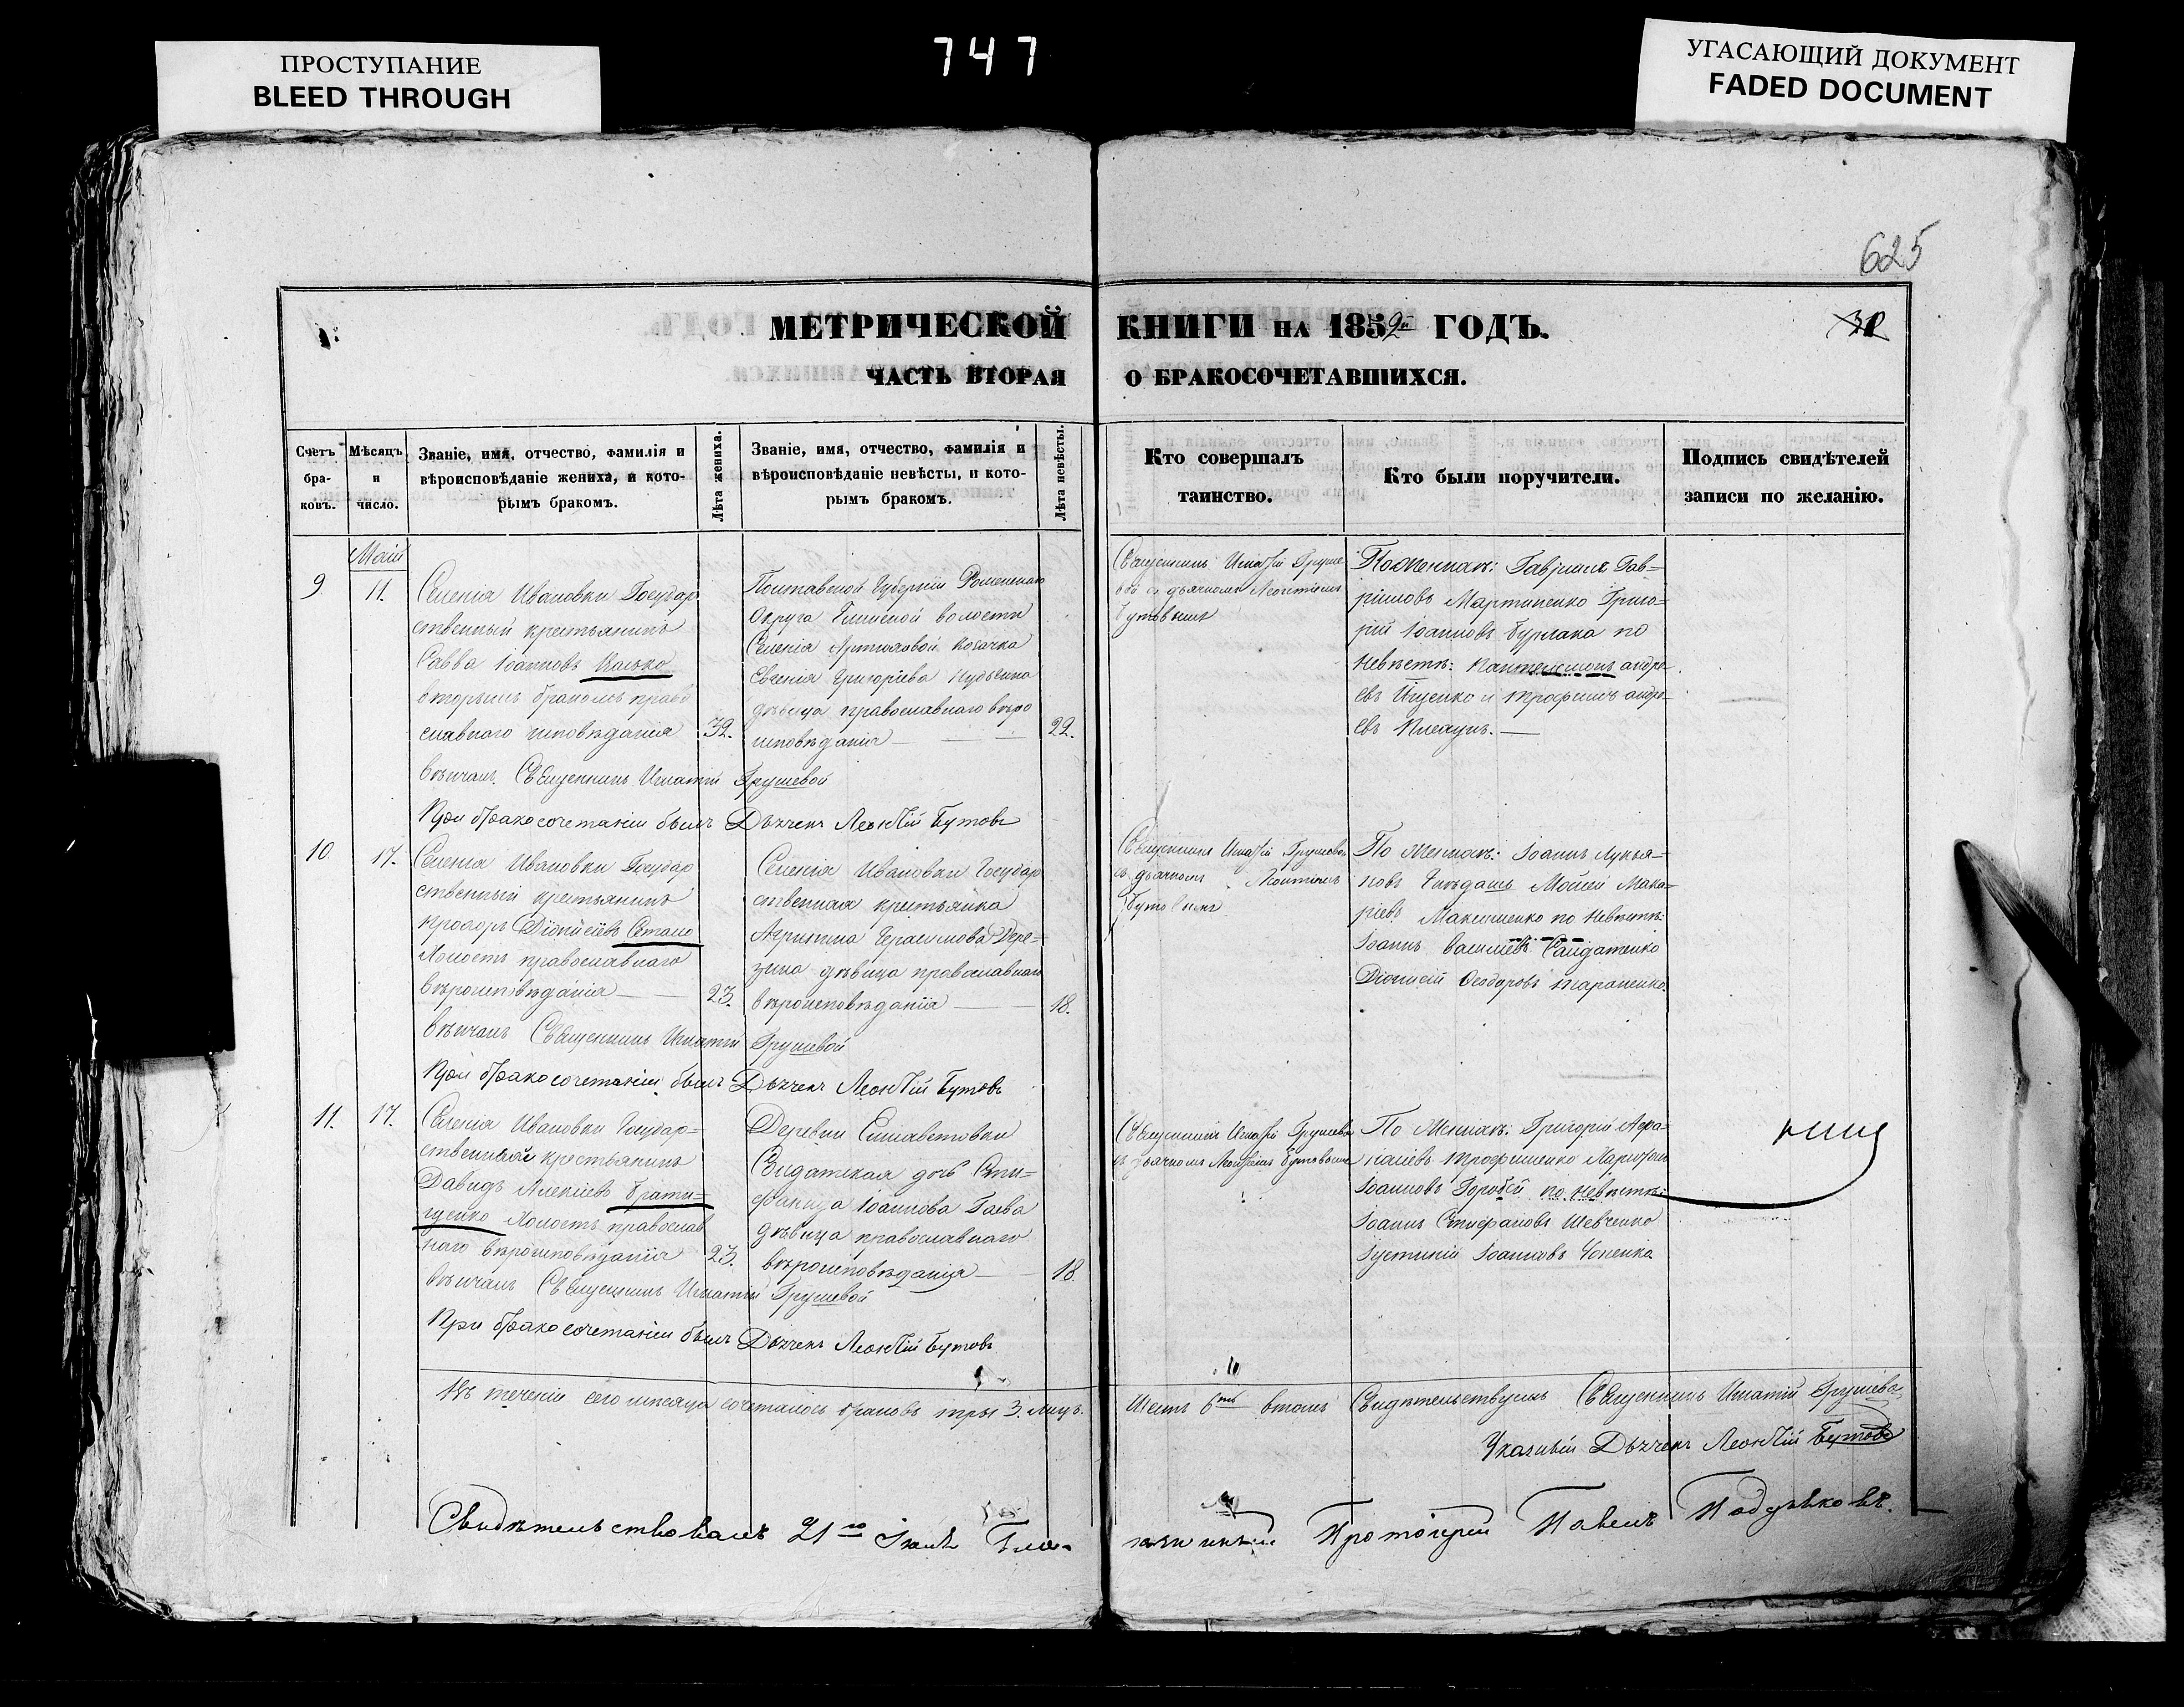 747
ПРОСТУПАНИЕ
BLEED THROUGH
УГАСАЮЩИЙ ДОКУМЕНТ
FADED DOCUMENT
625
МЕТРИЧЕСКОЙ КНИГИ НА 1859й ГОДЪ.
ЧАСТЬ ВТОРАЯ О БРАКОСОЧЕТАВШИХСЯ.
Счетъ бра-ковъ.
Мѣсяцъ и число.
Званіе, имя, отчество, фамилія и
вѣроисповѣданіе жениха, и кото-
рымъ бракомъ.
Лѣта жениха.
Званіе, имя, отчество, фамилія и
вѣроисповѣданіе невѣсты, и кото-
рымъ бракомъ.
Лѣта невѣсты.
Кто совершалъ
таинство.
Кто были поручители.
Подпись свидѣтелей
записи по желанію.
Маій
9
11.
Селенія Ивановки Государ
ственный крестьянинъ
Савва Іоанновъ
вторымъ бракомъ право
славнаго исповѣданія
32.
Полтавской Губерніи Роменскаго
Округа волости
Селенія Артюховой козачка
Евгенія Григоріева
дѣвица православнаго вѣро
исповѣданія
22.
Священникъ Игнатій Груше
вой съ дьячкомъ Леонтіемъ
Бутовымъ
По женихѣ: Гавріилъ Гав-
ріиловъ Мартиненко Григо-
рій Іоанновъ Бурлака по
невѣстѣ: Пантелеимонъ андре-
евъ Ищенко и Трофимъ андре-
евъ
вѣнчалъ Священникъ Игнатій Грушевой
При бракосочетаніи былъ Дьячекъ Леонтій Бутовъ
10
17.
Селенія Ивановки Государ
ственный крестьянинъ
Прохоръ
Холостъ православнаго
вѣроисповѣданія
23.
Селенія Ивановки Государ
ственная крестьянка
Агрипина Герасимова Дере-
зина дѣвица православнаго
вѣроисповѣданія
18.
Священникъ Игнатій Грушевой
съ дьячкомъ Леонтіемъ
Бутовымъ
По Женихѣ: Іоаннъ Лукья-
новъ Моисей Мака-
ріевъ Максименко по Невѣстѣ:
Іоаннъ Васильевъ
Діонисій Ѳеодоровъ Тараненко.
вѣнчалъ Священникъ Игнатій Грушевой
При бракосочетаніи былъ Дьячекъ Леонтій Бутовъ
11.
17.
Селенія Ивановки Государ-
ственный крестьянинъ
Давидъ Алексіевъ Брати-
щенко Холостъ православ
наго вѣроисповѣданія
23.
Деревни Елисаветовки
Солдатская дочь Епи-
фанида Іоаннова Гаева
дѣвица православнаго
вѣроисповѣданія
18
Священникъ Игнатій Грушевой
съ дьячкомъ Леонтіемъ Бутовымъ
По Женихѣ: Григорій Аѳа-
насіевъ Трофименко Ларіонъ
Іоанновъ Горобей по невѣстѣ:
Іоаннъ Епифановъ Шевченко
Іустиній Іоанновъ
вѣнчалъ Священникъ Игнатій Грушевой
При бракосочетаніи былъ Дьячекъ Леонтій Бутовъ
Въ теченіи сего мѣсяца сочеталось браковъ три 3. лицъ. Шесть 6ть втомъ Свидѣтельствуемъ Священникъ Игнатій Грушевой
Указный Дьячекъ Леонтій Бутовъ
Свидѣтельствовалъ 21го Іюля Благочинный Протоіерей Павелъ